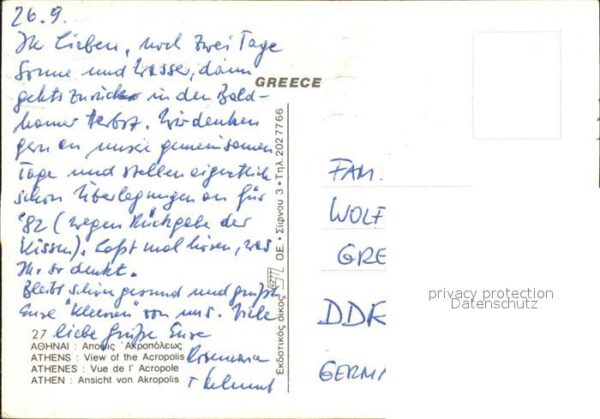 26.9.
Ihr Lieben, noch zwei Tage
Sonne und Wasser, dann
gehts zurück in den
Herbst. Wir denken
gern an unsre gemeinsamen
Tage und stellen eigentlich
schon Überlegungen an für
'82 (wegen Rückgabe der
Kissen). Laßt mal hören, was
Ihr so denkt.
Bleibt schön gesund und grüßt
Eure "Kleinen" von uns. Viele
liebe Grüße Eure
Rosemarie
+ Helmut
27
ΑΘΗΝΑΙ : Άποψις Ἀκροπόλεως
ATHENS : View of the Acropolis
ATHENES : Vue de l' Acropole
ATHEN : Ansicht von Akropolis
GREECE
Εκδοτικός οίκος
Ο.Ε. • Σίφνου 3 • Τηλ. 2027766
FAM.
WOLF
GRE
DDR
GERMA
privacy protection
Datenschutz